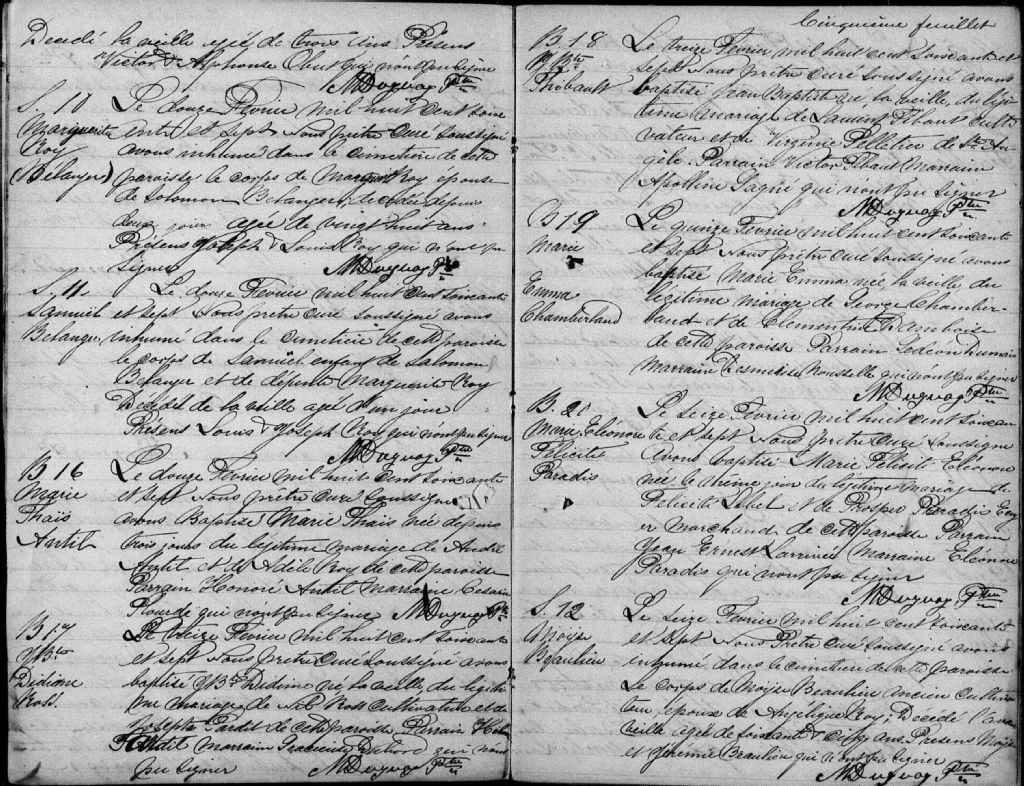 Decedé la veille agé de trois ans Présens
Victor & Alphonse qui n'ont pu signer
MDuguay Ptre
S. 10
Marguerite
Roy
(Belanger)
Le douze Fevrier mil huit cent soix
ante et sept Nous prêtre Curé soussigné
avons inhumé dans le cimetière de cette
paroisse le corps de Margrt Roy épouse
de Solomon Belanger, decédée depuis
deux jours agée de vingt huit ans
Présens Joseph & Louis Roy qui n'ont pu
signer
MDuguay Ptre
S. 11.
Samuel
Belanger
Le douze Fevrier mil huit cent soixante
et sept Nous prêtre Curé soussigné avons
inhumé dans le cimetière de cette paroisse
le corps de Samuel enfant de Salomon
Belanger et de défunte Marguerite Roy
Décédé de la veille agé d'un jour
Présens Louis & Joseph Roy qui n'ont pu signer
MDuguay Ptre
B 16
Marie
Thaïs
Antil
Le douze Fevrier mil huit cent soixante
et sept Nous prêtre Curé soussigné
avons Baptisé Marie Thaïs née depuis
trois jours du légitime mariage de
Antil et de Adèle Roy de cette paroisse
Parrain Honoré Antil Marraine Cesarie
Plourde qui n'ont pu signer MDuguay Ptre
B 17
JBte
Didime
Ross
Le treize Fevrier mil huit cent soixante
et sept Nous prêtre Curé soussigné avons
baptisé JBte Didime né la veille du légit
ime mariage de Ross Cultivateur et de
Josephte de cette paroisse Parrain
Marraine qui n'ont
pu signer MDuguay Ptre
Cinquième feuillet
B 18
JBte
Thibault
Le treize Fevrier mil huit cent soixante et
sept Nous prêtre curé soussigné avons
baptisé Jean Baptiste né la veille, du légi
time mariage de Laurent Thibaut Culti
vateur et de Virginie Pelletier de Ste An
gèle. Parrain Victor Thibaut Marraine
Apolline Gagné qui n'ont pu signer
MDuguay Ptre
B 19
Marie
Emma
Chamberland
Le quinze Fevrier mil huit cent soixante
et sept Nous prêtre curé soussigné avons
baptisé Marie Emma née la veille du
légitime mariage de George Chamber-
land et de Clementine
de cette paroisse Parrain Gédéon Dumais
Marraine Rousselle qui n'ont pu signer
MDuguay Ptre
B. 20
Marie Eleonore
Felicité
Paradis
Le seize Fevrier mil huit cent soixan
te et sept Nous prêtre Curé soussigné
avons baptisé Marie Felicité Eléonore
née le du légitime mariage de
Felicité Lebel et de Prosper Paradis
marchand de cette paroisse Parrain
Jean Ernest Larrivée Marraine Eléonore
Paradis qui n'ont pu signer
MDuguay Ptre
S. 12
Moyse
Beaulieu
Le seize Fevrier mil huit cent soixante
et sept Nous Prêtre Curé soussigné avons
inhumé dans le cimetière de cette paroisse
Le corps de Moyse Beaulieu ancien cultiva
teur, époux de Angélique Roy; Décédé
veille agé de soixante & cinq ans Présens Moyse
et Jeremie Beaulieu qui n'ont pu signer
MDuguay Ptre